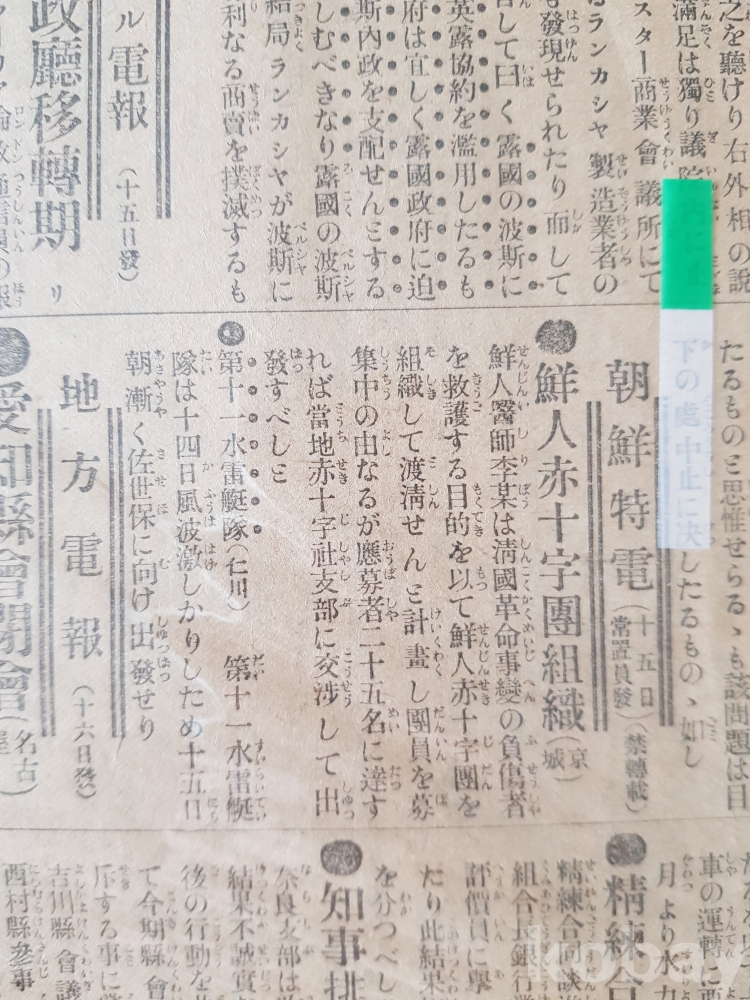 之を聽けり右外相の說
滿足は獨り議院
スター商業會議所にて
るランカシヤ製造業者の
も發現せられたり而して
言して曰く露國の波斯に
英露協約を濫用したるも
府は宜しく露國政府に迫
斯內政を支配せんとする
しむべきなり露國の波斯
結局ランカシヤが波斯に
利なる商賣を撲滅するも
ル電報
(十五日發)
政廳移轉期
リ
たるものと思惟せらるゝも該問題は目
下の處中止に決したるものゝ如し
朝鮮特電
(十五日常置員發)
(禁轉載)
●鮮人赤十字團組織(京城)
鮮人醫師李某は淸國革命事變の負傷者
を救護する目的を以て鮮人赤十字團を
組織して渡淸せんと計畫し團員を募
集中の由なるが應募者二十五名に達す
れば當地赤十字社支部に交涉して出
發すべしと
●第十一水雷艇隊(仁川) 第十一水雷艇
隊は十四日風波激しかりしため十五日
朝漸く佐世保に向け出發せり
地方電報
(十六日發)
●愛知縣會開會(名古屋
車の運轉に
月より水力
●精練合
精練合同談
組合長銀行
評價員に擧
たり此結果
を分つべし
●知事排
奈良支部は
結果不誠實
後の行動を
て今期縣會
斥する事に
吉川縣會議
酉村縣參事
kobay